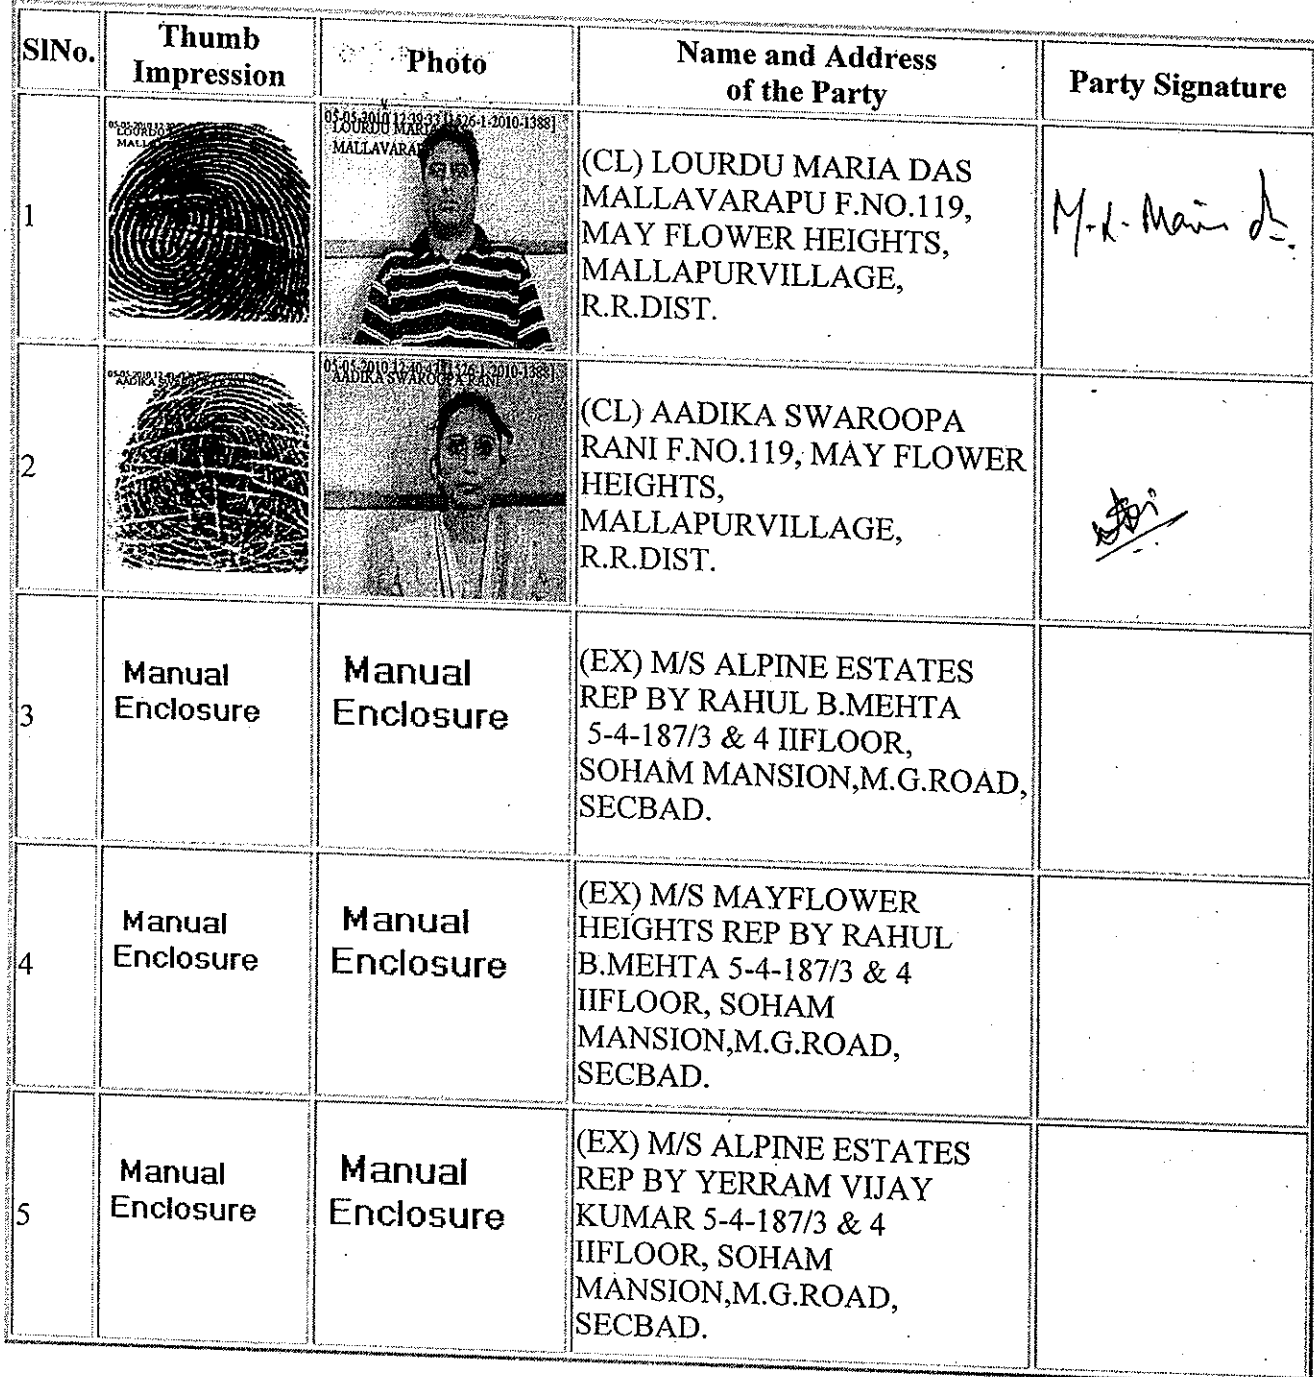 SlNo.
Thumb
Impression
Photo
Name and Address
of the Party
Party Signature
1
05-05-2010 12:39:33 [1326-1-2010-1388]
LOURDU MARIA
MALLAVARAPU
(CL) LOURDU MARIA DAS
MALLAVARAPU F.NO.119,
MAY FLOWER HEIGHTS,
MALLAPURVILLAGE,
R.R.DIST.
2
AADIKA SWAROOPA RANI
(CL) AADIKA SWAROOPA
RANI F.NO.119, MAY FLOWER
HEIGHTS,
MALLAPURVILLAGE,
R.R.DIST.
3
Manual
Enclosure
Manual
Enclosure
(EX) M/S ALPINE ESTATES
REP BY RAHUL B.MEHTA
5-4-187/3 & 4 IIFLOOR,
SOHAM MANSION,M.G.ROAD,
SECBAD.
4
Manual
Enclosure
Manual
Enclosure
(EX) M/S MAYFLOWER
HEIGHTS REP BY RAHUL
B.MEHTA 5-4-187/3 & 4
IIFLOOR, SOHAM
MANSION,M.G.ROAD,
SECBAD.
5
Manual
Enclosure
Manual
Enclosure
(EX) M/S ALPINE ESTATES
REP BY YERRAM VIJAY
KUMAR 5-4-187/3 & 4
IIFLOOR, SOHAM
MANSION,M.G.ROAD,
SECBAD.